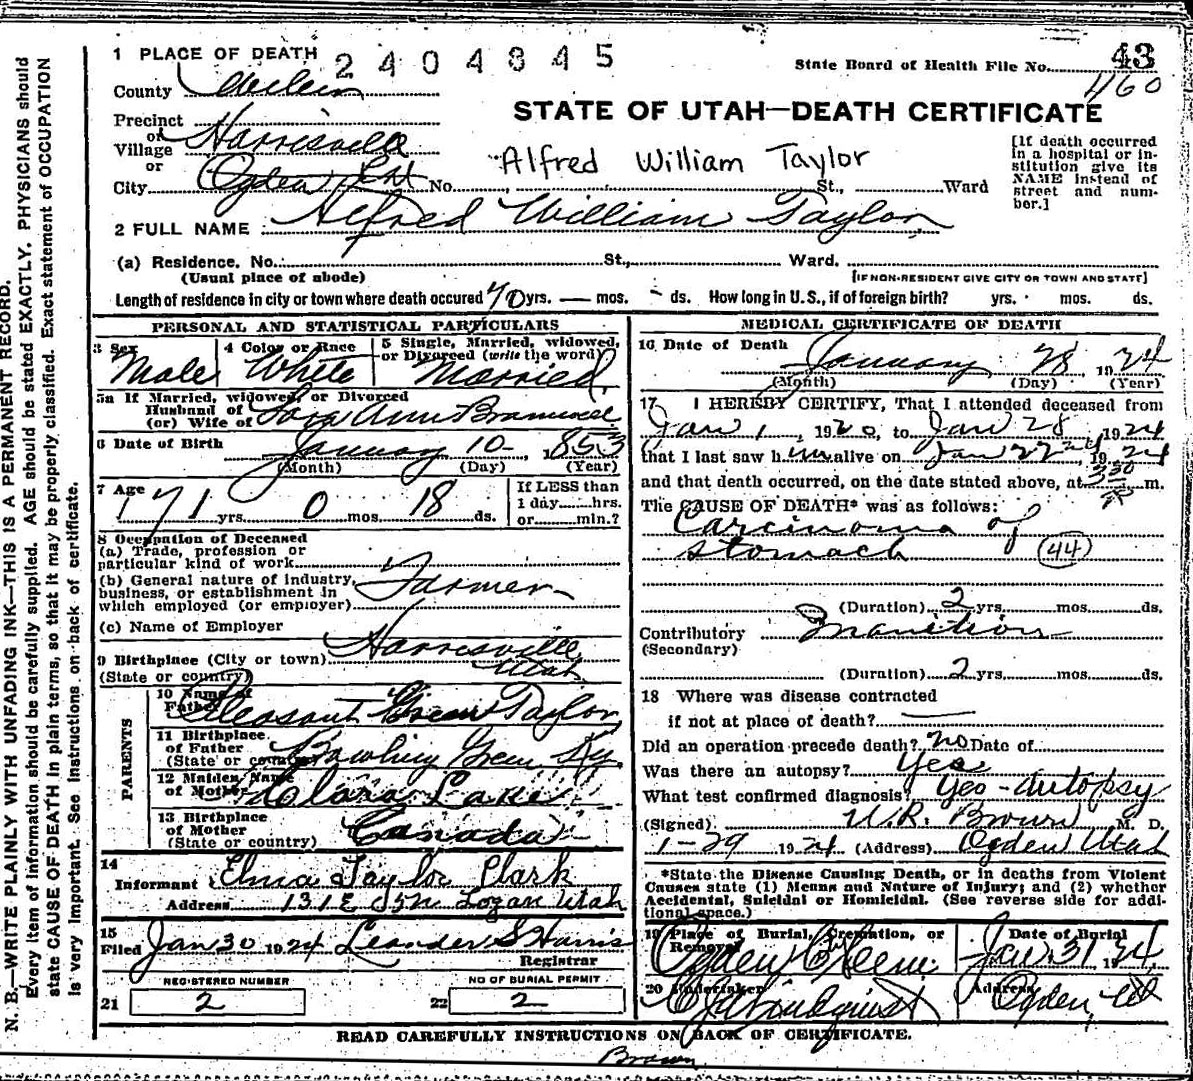 1 PLACE OF DEATH 2404345
State Board of Health File No. 43
1160
County Weber
STATE OF UTAH—DEATH CERTIFICATE
Precinct
or
Village Harrisville
or
City Ogden No. St., Ward
Alfred William Taylor
[If death occurred
in a hospital or in-
stitution give its
NAME instead of
street and num-
ber.]
2 FULL NAME Alfred William Taylor
(a) Residence. No. St., Ward.
(Usual place of abode) [IF NON-RESIDENT GIVE CITY OR TOWN AND STATE]
Length of residence in city or town where death occured 70 yrs. — mos. - ds. How long in U.S., if of foreign birth? yrs. mos. ds.
PERSONAL AND STATISTICAL PARTICULARS
3 Sex Male
4 Color or Race White
5 Single, Married, widowed,
or Divorced (write the word)
Married
5a If Married, widowed, or Divorced
Husband of
(or) Wife of Ann
6 Date of Birth January 10- 1853
(Month) (Day) (Year)
7 Age 71 yrs. 0 mos. 18 ds.
If LESS than
1 day hrs.
or min.?
8 Occupation of Deceased
(a) Trade, profession or
particular kind of work
(b) General nature of industry,
business, or establishment in
which employed (or employer)
Farmer
(c) Name of Employer
9 Birthplace (City or town) Harrisville
(State or country) Utah
PARENTS
10 Name of
Father Pleasant Green Taylor
11 Birthplace
of Father
(State or country) Bowling Green Ky.
12 Maiden Name
of Mother Clara Lake
13 Birthplace
of Mother
(State or country) Canada
14
Informant Elma Taylor Clark
Address 131 E Logan Utah
15
Filed Jan 30 1924 Leander S Harris
Registrar
REGISTERED NUMBER
21 2
NO OF BURIAL PERMIT
22 2
MEDICAL CERTIFICATE OF DEATH
16 Date of Death January 28 1924
(Month) (Day) (Year)
17 I HEREBY CERTIFY, That I attended deceased from
Jan 1, 1920, to Jan 28 1924
that I last saw him alive on Jan 22nd, 1924
and that death occurred, on the date stated above, at 3 30 P m.
The CAUSE OF DEATH* was as follows:
Carcinoma of
stomach (44)
(Duration) 2 yrs. mos. ds.
Contributory Inanition
(Secondary)
(Duration) 2 yrs. mos. ds.
18 Where was disease contracted
if not at place of death? —
Did an operation precede death? no Date of
Was there an autopsy? Yes
What test confirmed diagnosis? Yes - autopsy
(Signed) W.R. Brown M. D.
1-29 1924 (Address) Ogden Utah
*State the Disease Causing Death, or in deaths from Violent
Causes state (1) Means and Nature of Injury; and (2) whether
Accidental, Suicidal or Homicidal. (See reverse side for addi-
tional space.)
19 Place of Burial, Cremation, or
Removal
Ogden City
Date of Burial
Jan. 31 1924
20 Undertaker
Lindquist
Address
Ogden, Ut
READ CAREFULLY INSTRUCTIONS ON BACK OF CERTIFICATE.
Brown
N. B.—WRITE PLAINLY WITH UNFADING INK—THIS IS A PERMANENT RECORD.
Every item of information should be carefully supplied. AGE should be stated EXACTLY. PHYSICIANS should
state CAUSE OF DEATH in plain terms, so that it may be properly classified. Exact statement of OCCUPATION
is very important. See instructions on back of certificate.